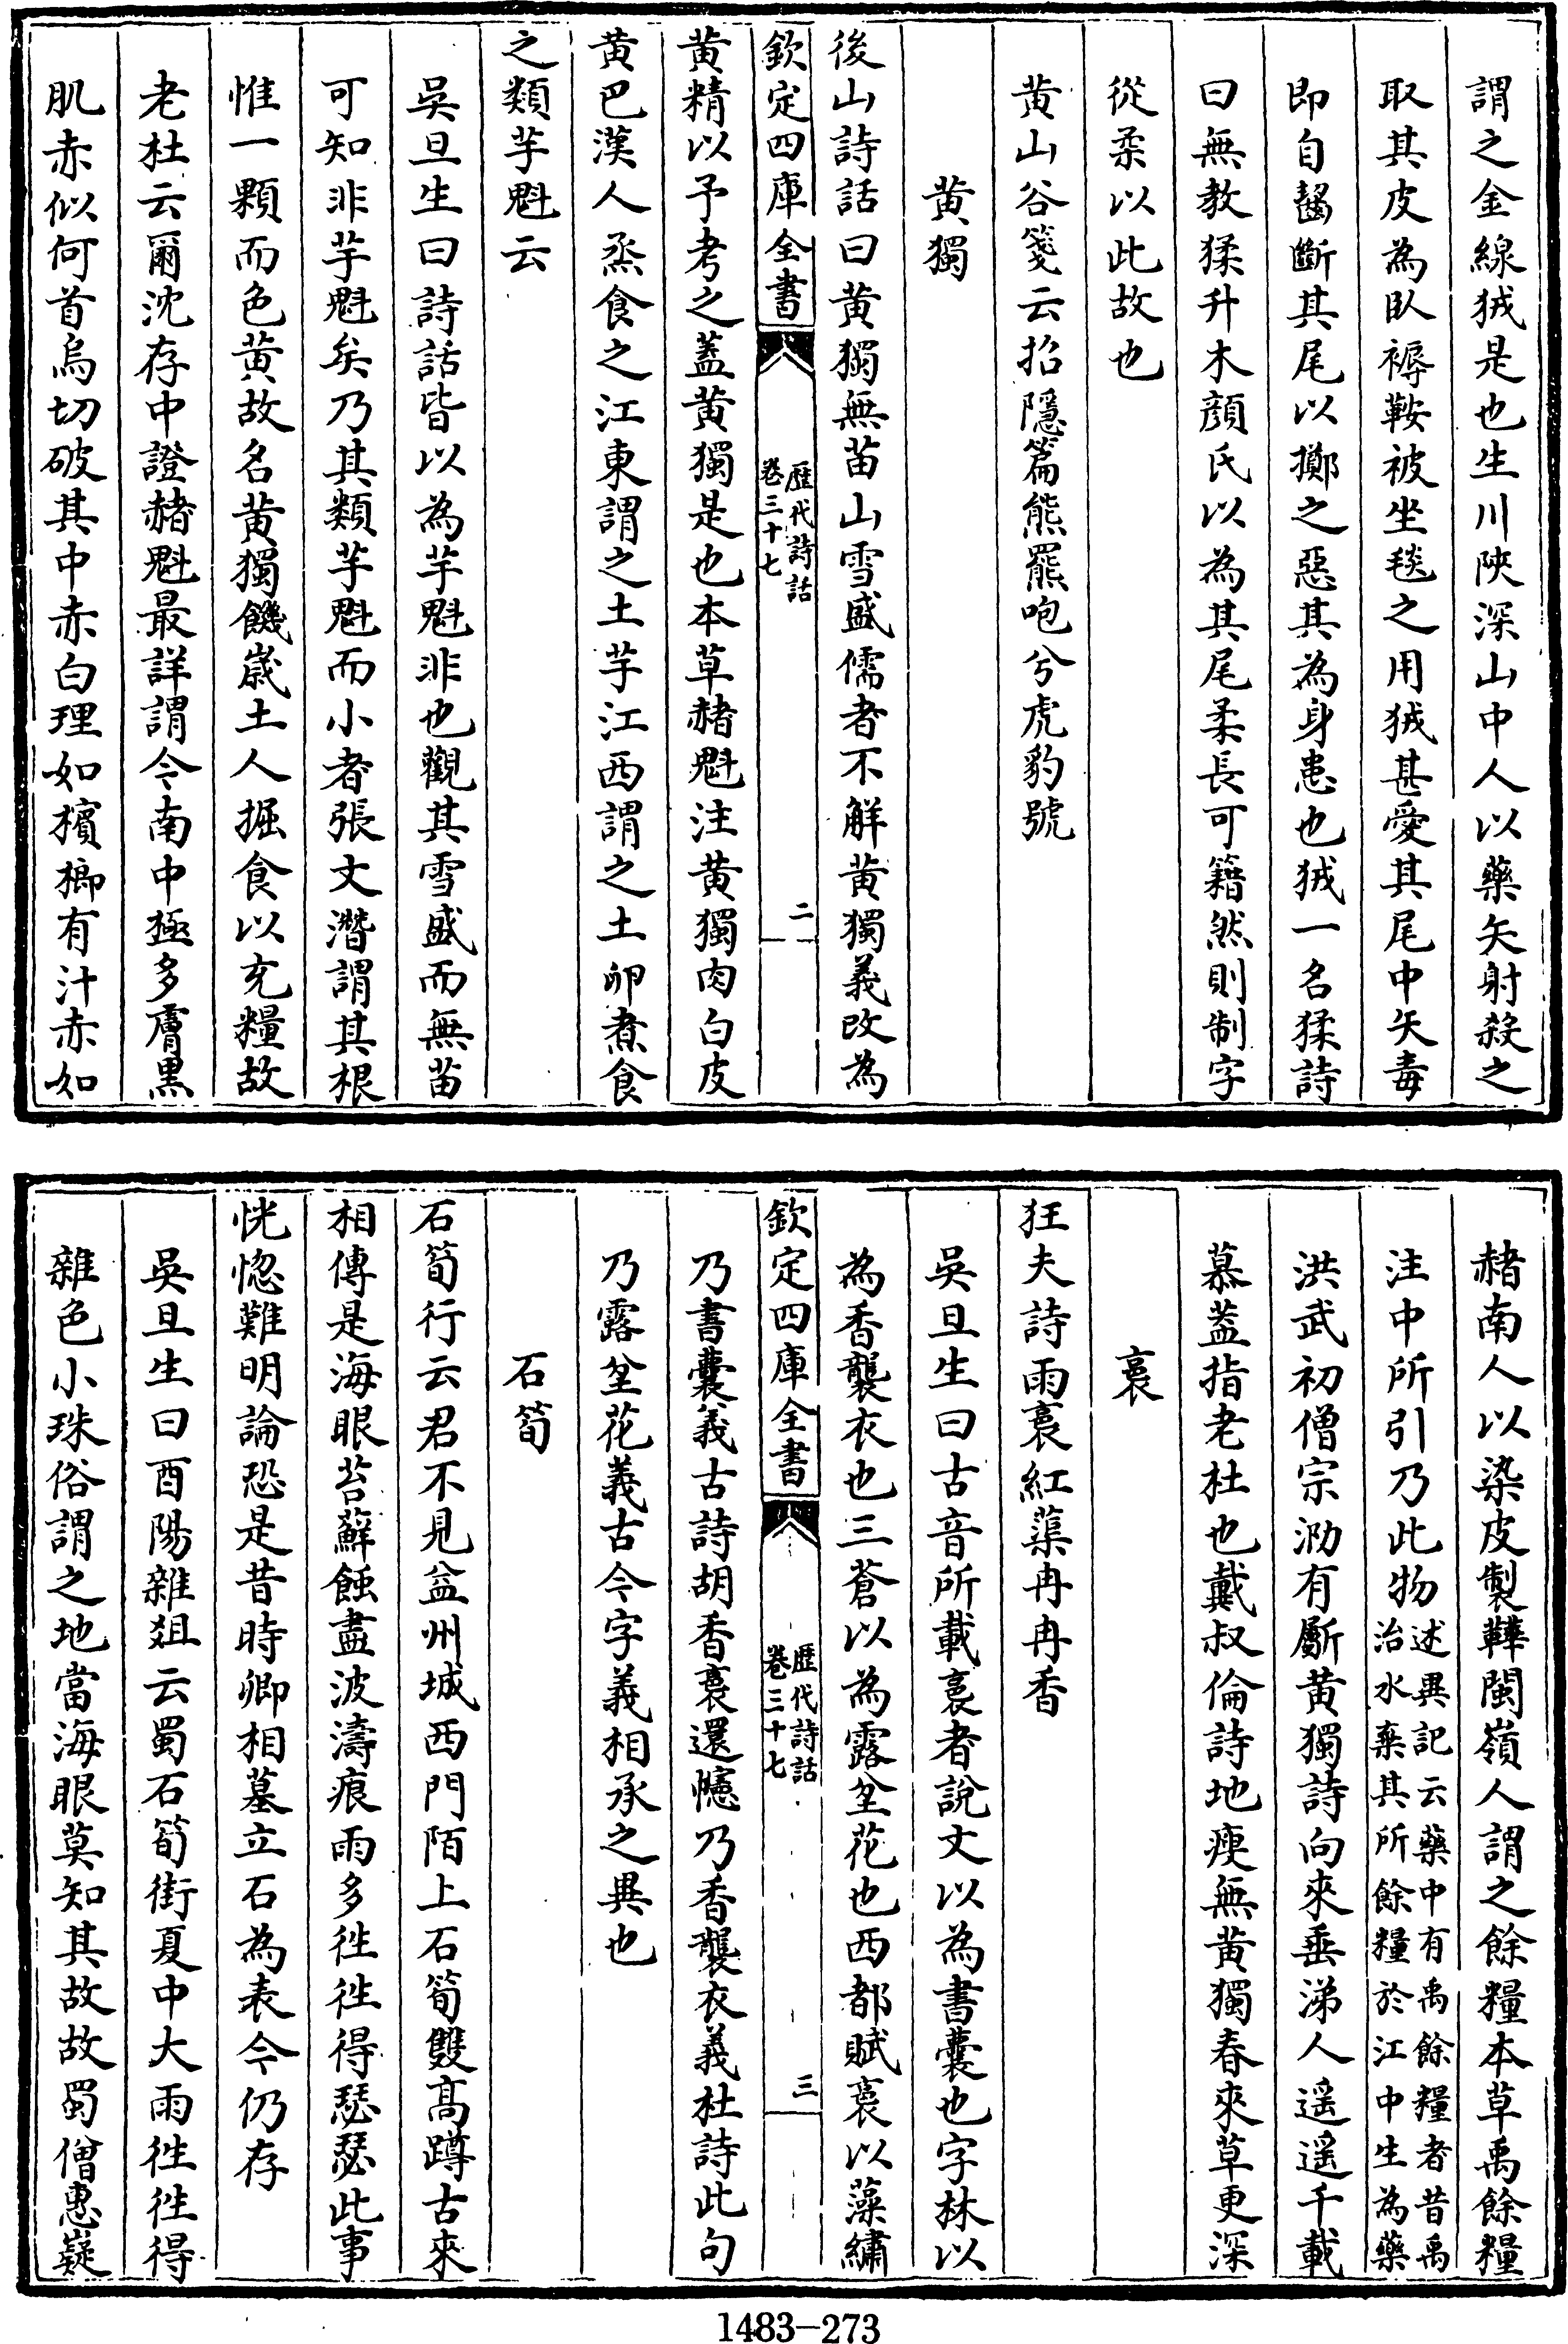 謂之金線狨是也生川陜深山中人以藥矢射殺之
取其皮為臥褥鞍被坐毯之用狨甚愛其尾中矢毒
即自齧斷其尾以擲之惡其為身患也狨一名猱詩
曰無教猱升木顔氏以為其尾柔長可籍然則制字
從柔以此故也
黄山谷箋云招隱篇熊羆咆兮虎豹號
黄獨
後山詩話曰黄獨無苗山雪盛儒者不解黄獨義改為
欽定四庫全書
歷代詩話
卷三十七
二
黄精以予考之葢黄獨是也本草赭魁注黄獨肉白皮
黄巴漢人烝食之江東謂之土芋江西謂之土卵煮食
之類芋魁云
吳旦生曰詩話皆以為芋魁非也觀其雪盛而無苗
可知非芋魁矣乃其類芋魁而小者張文潛謂其根
惟一顆而色黄故名黄獨饑嵗土人掘食以充糧故
老杜云爾沈存中證赭魁最詳謂今南中極多膚黒
肌赤似何首烏切破其中赤白理如檳榔有汁赤如
赭南人以染皮製鞾閩嶺人謂之餘糧本草禹餘糧
注中所引乃此物述異記云藥中有禹餘糧者昔禹治水棄其所餘糧於江中生為藥
洪武初僧宗泐有斸黄獨詩向來垂涕人遥遥千載
慕葢指老杜也戴叔倫詩地瘦無黄獨春來草更深
裛
狂夫詩雨裛紅蕖冉冉香
吳旦生曰古音所載裛者說文以為書囊也字林以
為香襲衣也三蒼以為露坌花也西都賦裛以藻繡
欽定四庫全書
歷代詩話
卷三十七
三
乃書囊義古詩胡香裛還幰乃香襲衣義杜詩此句
乃露坌花義古今字義相承之異也
石筍
石筍行云君不見益州城西門陌上石筍雙髙蹲古來
相傳是海眼苔蘚蝕盡波濤痕雨多徃徃得瑟瑟此事
恍惚難明論恐是昔時卿相墓立石為表今仍存
吳旦生曰酉陽雜俎云蜀石筍街夏中大雨徃徃得
雜色小珠俗謂之地當海眼莫知其故故蜀僧惠嶷
1483-273